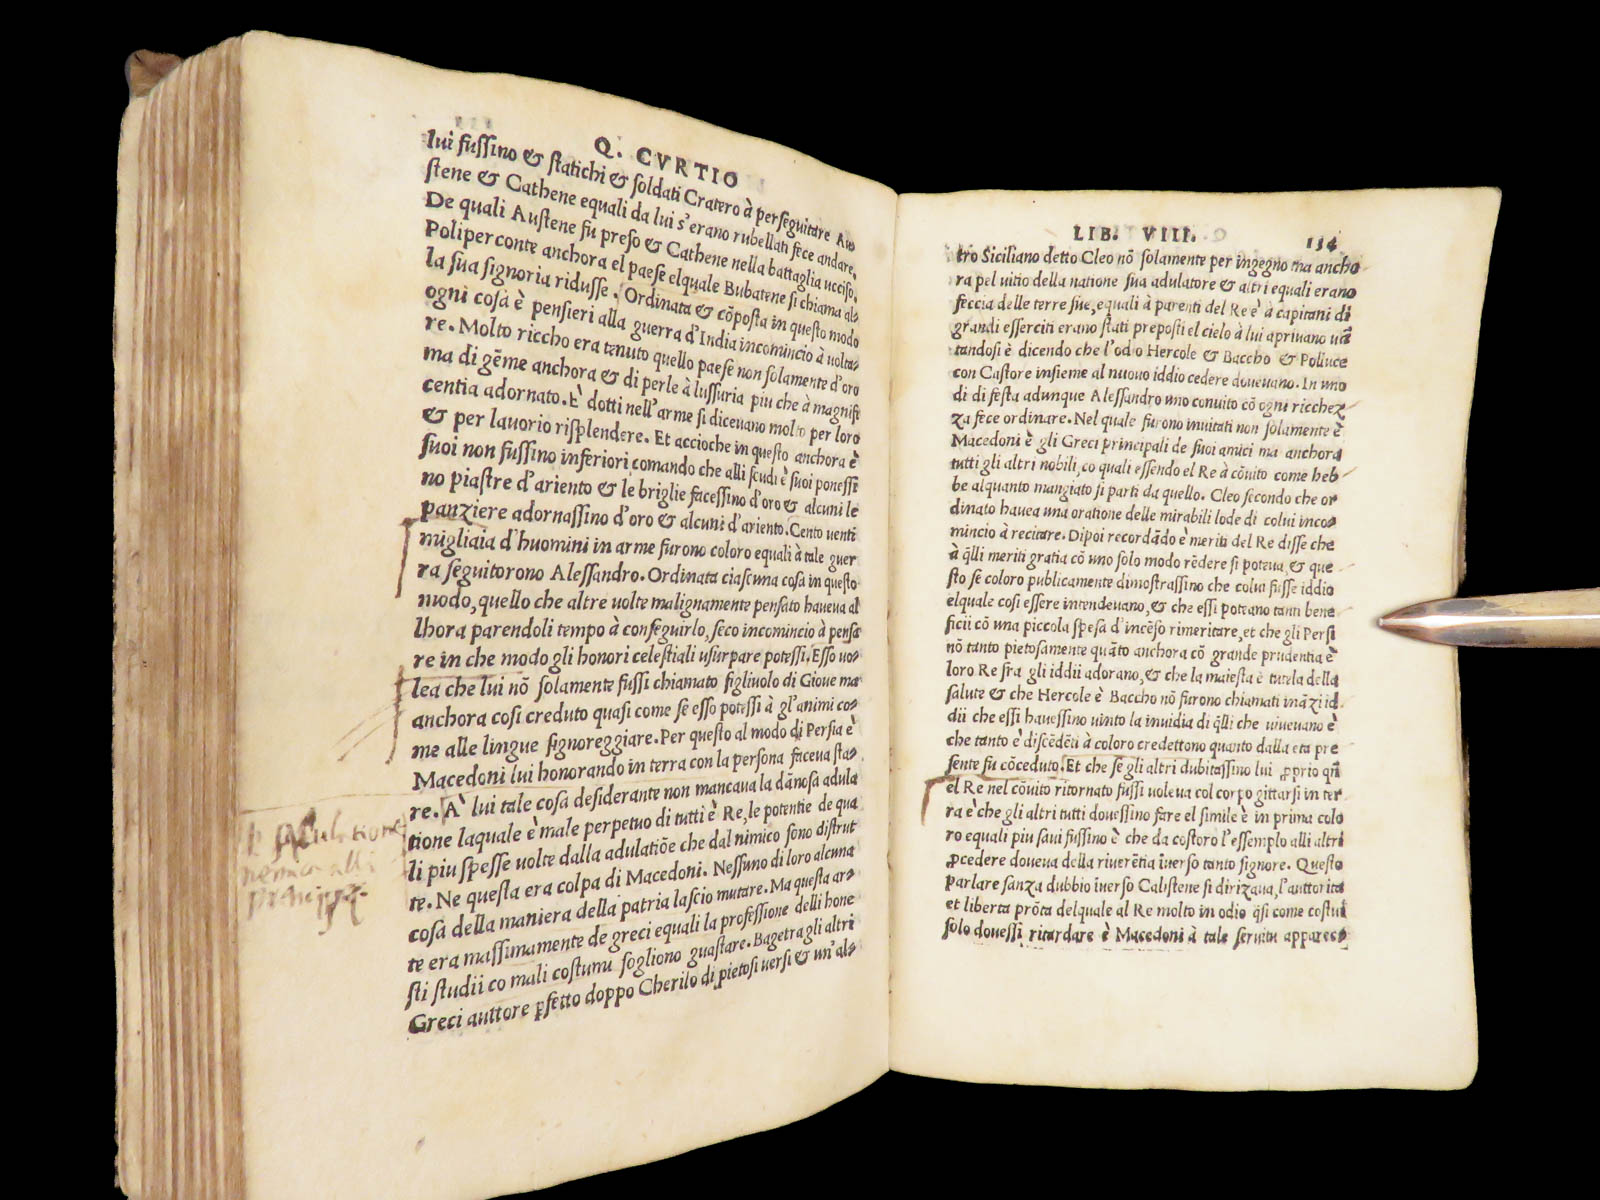 Q. CVRTIO
lui fussino & statichi & soldati Cratero à perseguitare Au⸗
stene & Cathene equali da lui s'erano rubellati fece andare.
De quali Austene fu preso & Cathene nella battaglia ucciso.
Poliperconte anchora el paese elquale Bubatene si chiama al⸗
la sua signoria ridusse. Ordinata & cōposta in questo modo
ogni cosa è pensieri alla guerra d'India incomincio à uolta⸗
re. Molto riccho era tenuto quello paese non solamente d'oro
ma di gēme anchora & di perle à lussuria piu che à magnifi
centia adornato. E' dotti nell'arme si diceuano molto per loro
& per lauorio risplendere. Et accioche in questo anchora è
suoi non fussino inferiori comando che alli scudi è suoi ponessi
no piastre d'ariento & le briglie facessino d'oro & alcuni le
panziere adornassino d'oro & alcuni d'ariento. Cento uenti
migliaia d'huomini in arme furono coloro equali à tale guer
ra seguitorono Alessandro. Ordinata ciascuna cosa in questo
modo, quello che altre uolte malignamente pensato haueua al
lhora parendoli tempo à conseguirlo, seco incomincio à pensa
re in che modo gli honori celestiali usurpare potessi. Esso uo⸗
lea che lui nō solamente fussi chiamato figliuolo di Gioue ma
anchora cosi creduto quasi come se esso potessi à gl'animi co⸗
me alle lingue signoreggiare. Per questo al modo di Persia è
Macedoni lui honorando in terra con la persona faceua sta⸗
re. A' lui tale cosa desiderante non mancaua la dānosa adula
tione laquale è male perpetuo di tutti è Re, le potentie de qua
li piu spesse uolte dalla adulatiōe che dal nimico sono distrut
te. Ne questa era colpa di Macedoni. Nessuno di loro alcuna
cosa della maniera della patria lascio mutare. Ma questa ar⸗
te era massimamente de greci equali la professione delli hone
sti studii co mali costumi sogliono guastare. Bagetra gli altri
Greci auttore ꝑfetto doppo Cherilo di pietosi uersi & un'al⸗
LIB. VIII. 134
tro Siciliano detto Cleo nō solamente per ingegno ma ancho
ra pel uitio della natione sua adulatore & altri equali erano
feccia delle terre sue, equali à parenti del Re è à capitani di
grandi esserciti erano stati preposti el cielo à lui apriuano uā
tandosi è dicendo che l'odio Hercole & Baccho & Polluce
con Castore insieme al nuouo iddio cedere doueuano. In uno
di di festa adunque Alessandro uno conuito cō ogni ricchez
za fece ordinare. Nel quale furono inuitati non solamente è
Macedoni è gli Greci principali de suoi amici ma anchora
tutti gli altri nobili, co quali essendo el Re à cōuito come heb⸗
be alquanto mangiato si parti da quello. Cleo secondo che or
dinato hauea una oratione delle mirabili lode di colui inco⸗
mincio à recitare. Dipoi recordādo è meriti del Re disse che
à q̄lli meriti gratia cō uno solo modo rēdere si poteua, & que⸗
sto se coloro publicamente dimostrassino che colui fusse iddio
elquale cosi essere intendeuano, & che essi poteano tanti bene⸗
ficii cō una piccola spesa d'incēso rimeritare, et che gli Persi
nō tanto pietosamente quāto anchora cō grande prudentia è
loro Re fra gli iddii adorano, & che la maiesta è tutela della
salute & che Hercole è Baccho nō furono chiamati ināzi id⸗
dii che essi hauessino uinto la inuidia di q̄lli che uiueuano è
che tanto è discēdēti à coloro credettono quanto dalla eta pre⸗
sente fu cōceduto. Et che se gli altri dubitassino lui ꝓprio qn̄
el Re nel cōuito ritornato fussi uoleua col corpo gittarsi in ter⸗
ra è che gli altri tutti douessino fare el simile è in prima colo
ro equali piu saui fussino è che da costoro l'essemplo alli altri
ꝓcedere doueua della riuerētia īuerso tanto signore. Questo
parlare sanza dubbio īuerso Calistene si dirizaua, l'auttorita
et liberta prōta delquale al Re molto in odio q̄si come costui
solo douessi ritardare è Macedoni à tale seruitu apparec⸗